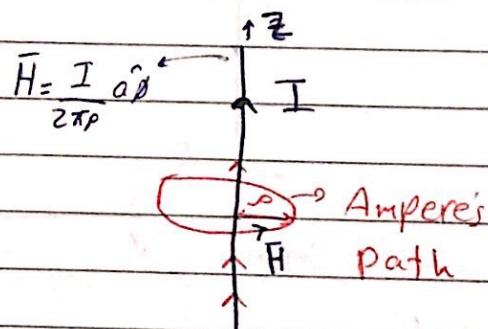 Z
H̄ = I/2πρ âϕ
I
ρ → Ampere's
H̄ path